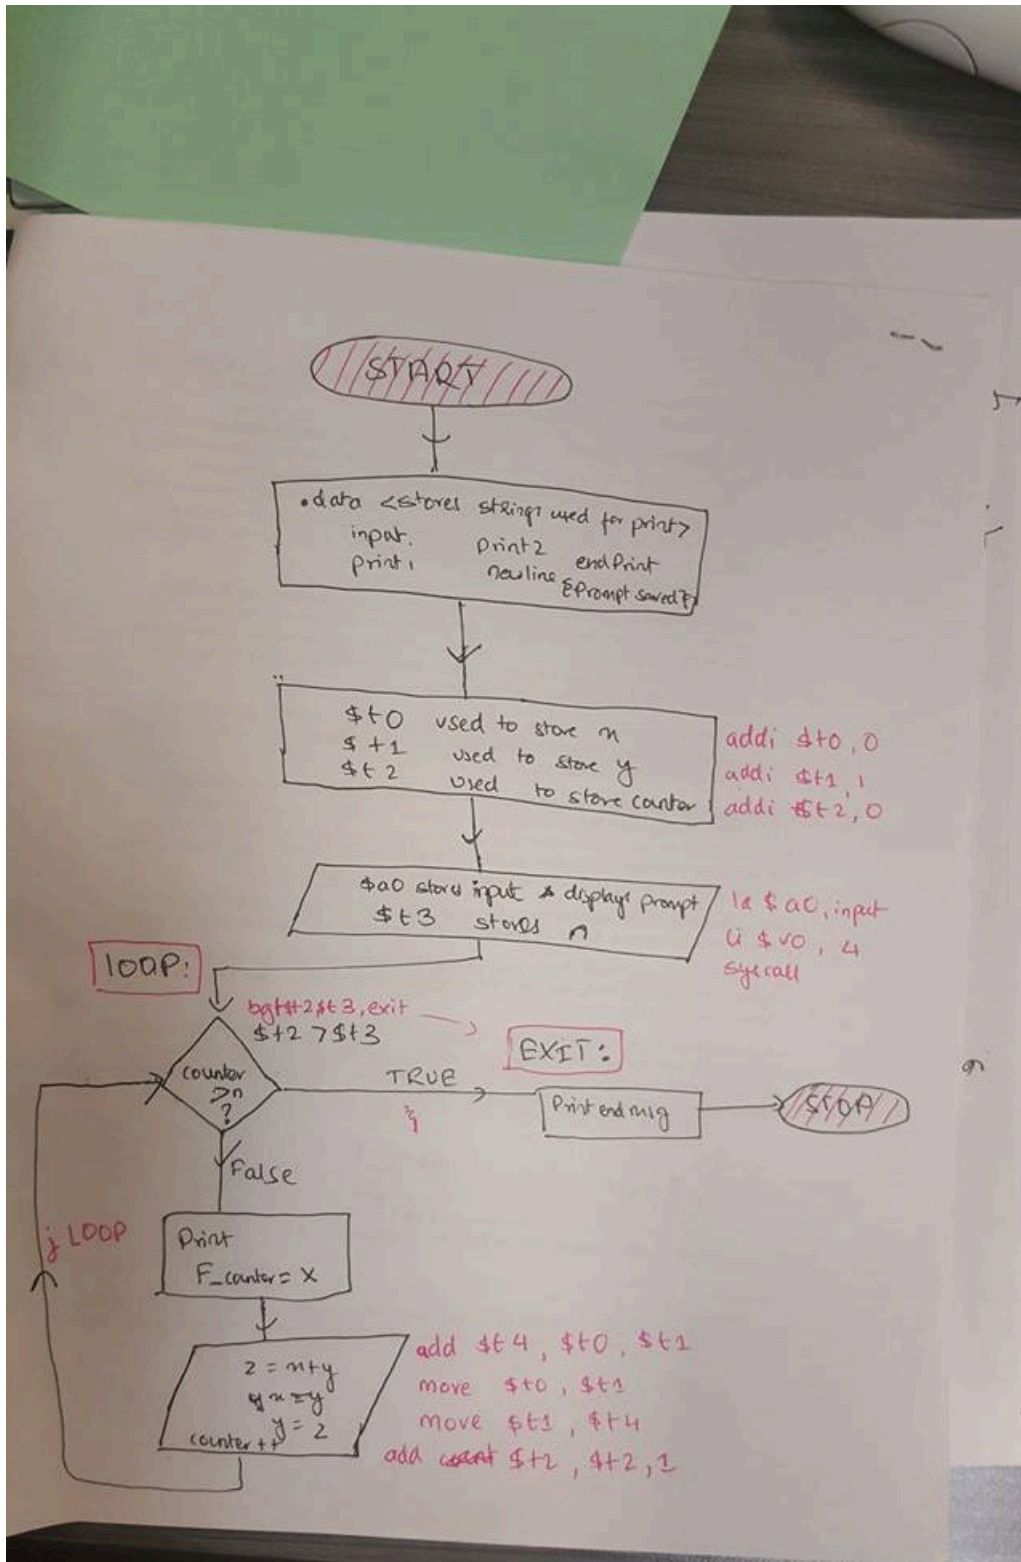 START
.data <stores strings used for print>
input. Print2 endPrint
print1 newline {Prompt saved}
$t0 used to store x
$t1 used to store y
$t2 used to store counter
addi $t0, 0
addi $t1, 1
addi $t2, 0
$a0 stores input & displays prompt
$t3 stores n
la $a0, input
li $v0, 4
syscall
LOOP:
bgt $t2 $t3, exit
$t2 > $t3
EXIT:
counter
>n
?
TRUE
Print end msg
STOP
False
j LOOP
Print
F_counter = X
z = x+y
x = y
y = z
counter++
add $t4, $t0, $t1
move $t0, $t1
move $t1, $t4
add $t2, $t2, 1